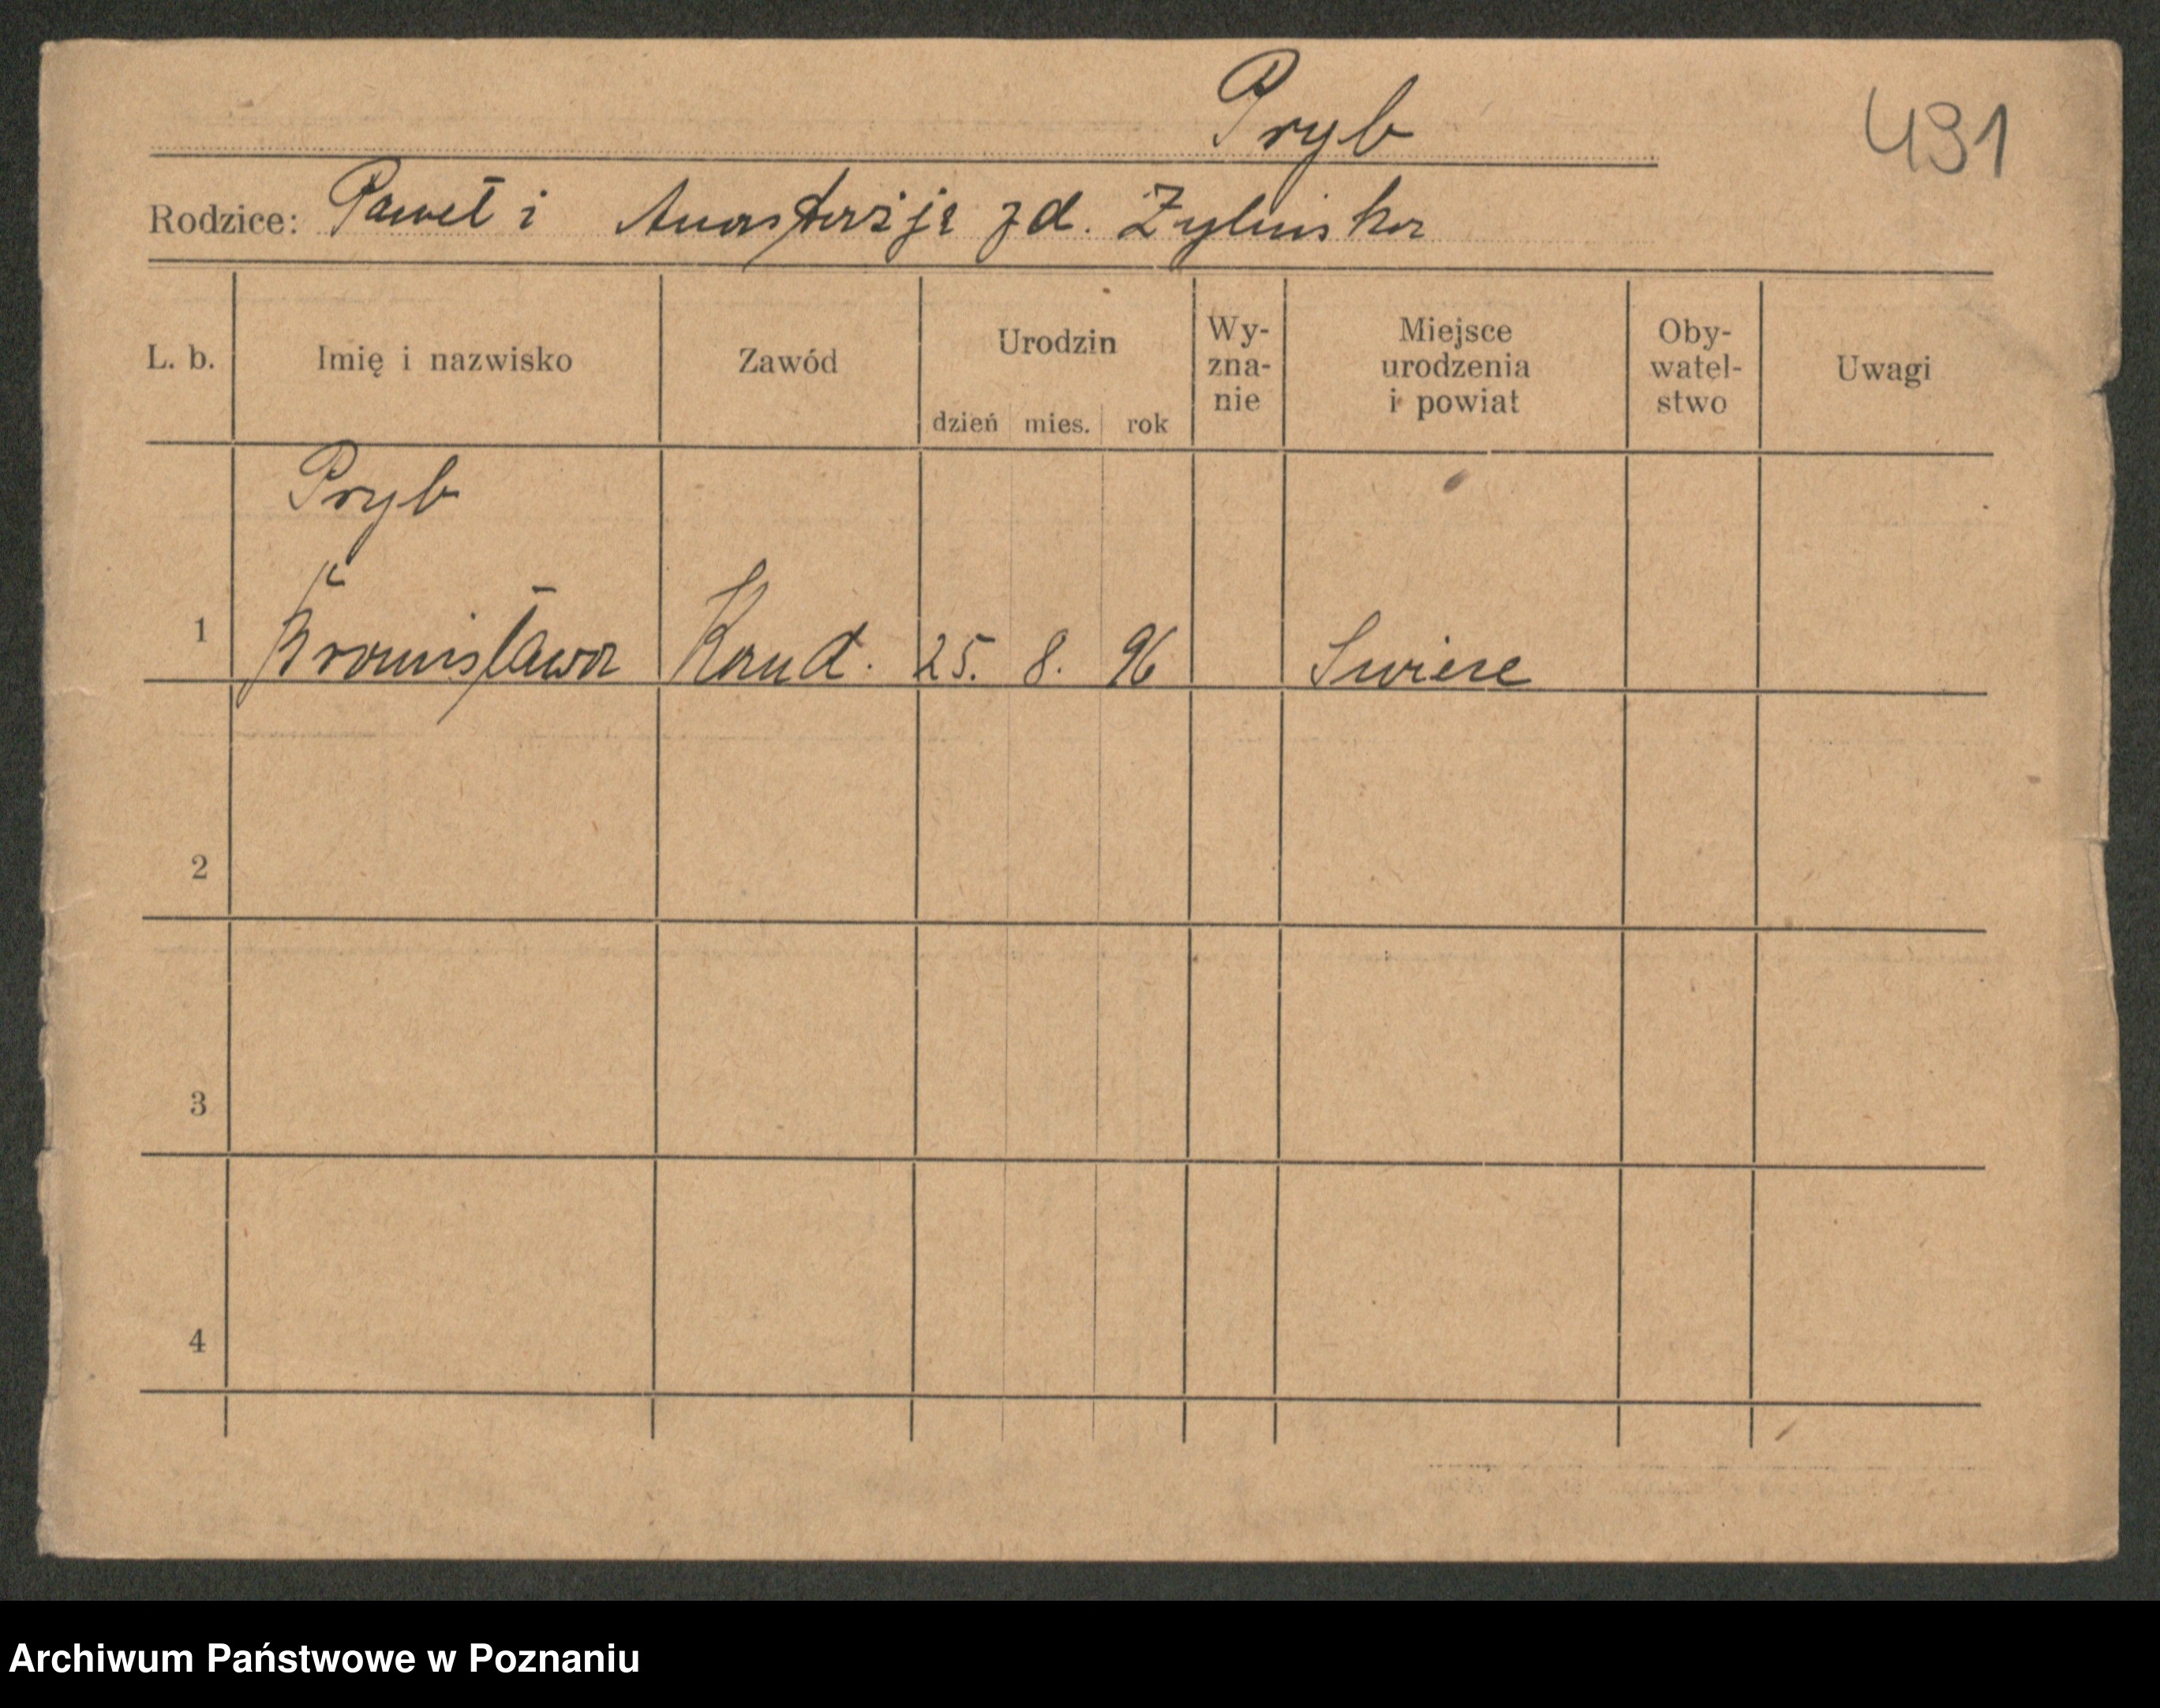 Pryb
431
Rodzice: Paweł i Anastazja zd. Zylinska
L. b. Imię i nazwisko Zawód Urodzin dzień mies. rok Wy-zna-nie Miejsce urodzenia i powiat Oby-watel-stwo Uwagi
Pryb
1 Bronisława 25. 8. 96
2
3
4
Archiwum Państwowe w Poznaniu